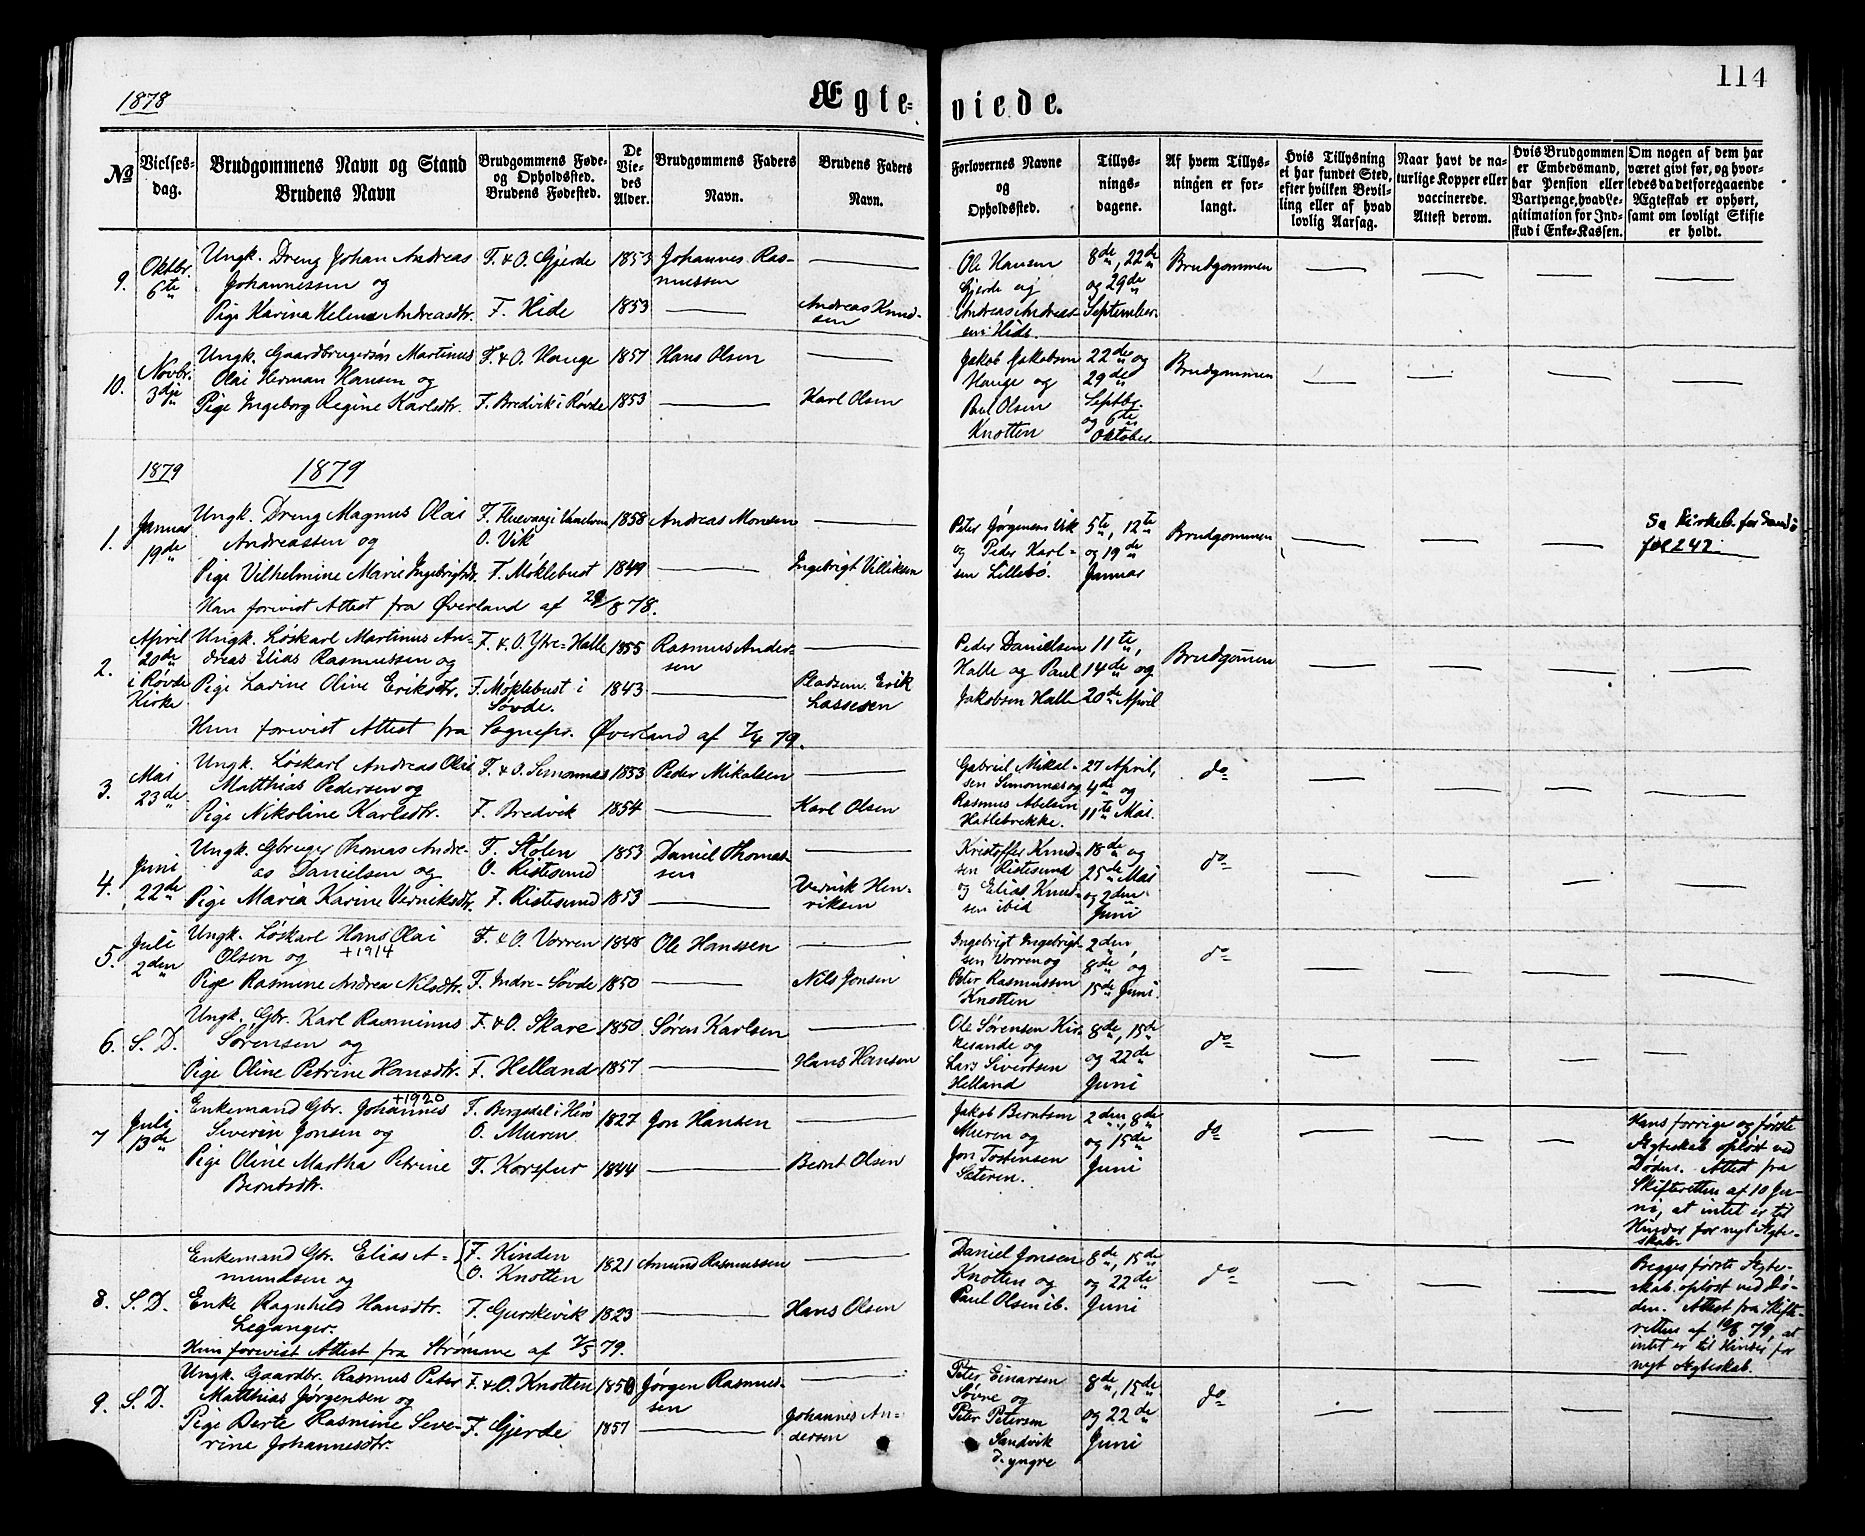 1878
Ægte-
viede.
114
No
Vielses-
dag.
Brudgommens Navn og Stand
Brudens Navn
Brudgommens Føde-
og Opholdssted.
Brudens Fødested.
De
Vie-
des
Alder.
Brudgommens Faders
Navn.
Brudens Faders
Navn.
Forlovernes Navne
og
Opholdssted.
Tillys-
nings-
dagene.
Af hvem Tillys-
ningen er for-
langt.
Hvis Tillysning
ei har fundet Sted,
efter hvilken Bevil-
ling eller af hvad
lovlig Aarsag.
Naar havt de na-
turlige Kopper eller
vaccinerede.
Attest derom.
Hvis Brudgommen
er Embedsmand,
har Pension eller
Vartpenge, hvad Le-
gitimation for Ind-
skud i Enke-Kassen.
Om nogen af dem har
været givt før, og hvor-
ledes da det foregaaende
Ægteskab er ophørt,
samt om lovligt Skifte
er holdt.
9.
Oktbr.
6te
Ungk. Dreng Johan Andreas
Johannessen og
Pige Karina Helene Andreasdtr.
F. & O. Gjerde
F. Hide
1853
1853
Johannes Ras-
mussen
Andreas Knud-
sen
Ole Hansen
Gjerde og
Andreas Andreas-
sen Hide
8de, 22de
og 29de
September.
Brudgommen
10.
Novbr.
3dje
Ungk. Gaardbrugersøn Martinus
Olai Herman Hansen og
Pige Ingeborg Regine Karlsdtr.
F. & O. Hauge
F. Bredvik i Røvde
1857
1853
Hans Olsen
Karl Olsen
Jakob Jakobsen
Hauge og
Paul Olsen
Knotten
22de og
29de
Septbr.
og 6te
Oktober.
Brudgommen
1879
1879
1.
Januar
19de
Ungk. Dreng Magnus Olai
Andreassen og
Pige Vilhelmine Marie Ingebrigtsdtr.
Han forevist Attest fra Øverland af 29/8 78.
O. Vik
F. Møklebust
1858
1849
Andreas Monsen
Ingebrigt Villiksen
Peter Jørgensen Vik
og Peder Karl-
sen Lillebö.
5te, 12te
og 19de
Januar
Brudgommen
Se Kirkeb. for Sandø
fol 242
2.
April
20de
i Røvde
Kirke
Ungk. Løskarl Martinus An-
dreas Elias Rasmussen og
Pige Larine Oline Eriksdtr.
Hun forevist Attest fra Sognepr. Øverland af 7/4 79.
F. & O. Ytre-Halle
F. Møklebust i
Søvde.
1855
1843
Rasmus Ander-
sen
Pladsm. Erik
Lassesen
Peder Danielsen
Halle og Paul
Jakobsen Halle
11te,
14de og
20de April
Brudgommen
3.
Mai
23de
Ungk. Løskarl Andreas Olai
Matthias Pedersen og
Pige Nikoline Karlsdtr.
F. & O. Simonnæs
F. Bredvik
1853
1854
Peder Mikalsen
Karl Olsen
Gabriel Mikal-
sen Simonnæs og
Rasmus Abelsen
Hatlebrekke.
27 April,
4de og
11te Mai.
do
4.
Juni
22de
Ungk. Gbruger Thomas Andre-
as Danielsen og
Pige Maria Karine Verniksdtr.
F. Stølen
O. Ristesund
F. Ristesund
1853
1853
Daniel Thomas-
sen
Vernik Hen-
riksen
Kristoffer Knud-
sen Ristesund
og Elias Knud-
sen ibid
18de og
25de Mai
og 2den
Juni
do
5.
Juli
2den
Ungk. Løskarl Hans Olai
Olsen og
+1914
Pige Rasmine Andrea Nilsdtr.
F. & O. Vorren
F. Indre-Søvde
1848
1850
Ole Hanssen
Nils Jonsen
Ingebrigt Ingebrigt-
sen Vorren og
Peter Rasmussen
Knotten
2den,
8de og
15de Juni.
do
6.
S. D.
Ungk. Gbr. Karl Rasminus
Sørensen og
Pige Oline Petrine Hansdtr.
F. & O. Skare
F. Helland
1850
1857
Søren Karlsen
Hans Hansen
Ole Sørensen Kir-
kesande og
Lars Sivertsen
Helland
8de, 15de
og 22de
Juni
do
7
Juli
13de
+1920
Enkemand Gbr. Johannes
Severin Jonsen og
Pige Oline Martha Petrine
Berntsdtr.
F. Bergsdal i Herö
O. Muren
F. Korsfur
1827
1844
Jon Hansen
Bernt Olsen
Jakob Berntsen
Muren og
Jon Tostensen
Sæteren.
2den, 8de
og 15de
Juni
do
Hans forrige og første
Ægteskab opløst ved
Døden. Attest fra
Skifteretten af 10 Ju-
ni, at intet er til
Hinder for nyt Ægte-
skab.
8.
S. D.
Enkemand Gbr. Elias A-
mundsen og
Enke Ragnhild Hansdtr.
Leganger.
Hun forevist Attest fra Strømme af 7/5 79.
F. Kinden
O. Knotten
F. Gurskevik
1821
1823
Amund Rasmussen
Hans Olsen
Daniel Jonsen
Knotten og
Paul Olsen ib.
8de, 15de
og 22de
Juni
do
Begges første Ægte-
skab opløst ved Dø-
den. Attest fra Skifte-
retten af 10/6 79, at
intet er til Hinder for
nyt Ægteskab.
9.
S. D.
Ungk. Gaardbr. Rasmus Peter
Matthias Jørgensen og
Pige Berte Rasmine Seve-
rine Johannesdtr.
F. & O. Knotten
F. Gjerde
1850
1857
Jørgen Rasmus-
sen
Johannes An-
dersen
Peter Einarsen
Søvne og
Peter Petersen
Sandvik
d. yngre
8de, 15de
og 22de
Juni
do